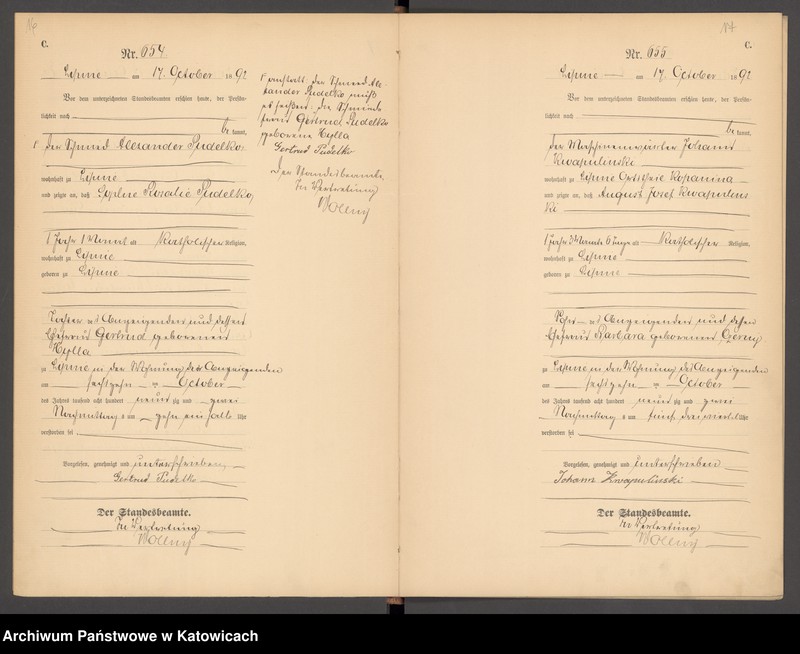 16
C.
Nr. 654.
Lipine am 17. October 1892
Vor dem unterzeichneten Standesbeamten erschien heute, der Persön-
lichkeit nach
be kannt,
der Schmied Alexander Pudelko,
wohnhaft zu Lipine
und zeigte an, daß Rosalie Pudelko,
1 Jahr 1 Monat alt katholischer Religion,
wohnhaft zu Lipine
geboren zu Lipine
Tochter des Anzeigenden und dessen
Ehefrau Gertrud geborenen
Hylla
zu Lipine in der Wohnung des Anzeigenden
am sechszehn ten October
des Jahres tausend acht hundert neun zig und zwei
Nachmittag s um zehn ein halb Uhr
verstorben sei
Vorgelesen, genehmigt und unterschrieben
Gertrud Pudelko
Der Standesbeamte.
In Vertretung
Wolny
anstatt der Schmied Ale-
xander Pudelko muß
es heißen: die Schmieds
frau Gertrud Pudelko
geborene Hylla
Gertrud Pudelko
Der Standesbeamte
In Vertretung
Wolny
C.
Nr. 655
Lipine am 17 October 1892
Vor dem unterzeichneten Standesbeamten erschien heute, der Persön-
lichkeit nach
be kannt,
der Maschinenwärter Johann
Kwapulinski
wohnhaft zu Lipine Ortstheil Kopanina
und zeigte an, daß August Josef Kwapulins
ki
1 Jahr 3 Monate 6 Tage alt katholischer Religion,
wohnhaft zu Lipine
geboren zu Lipine
Sohn des Anzeigenden und dessen
Ehefrau Barbara geborenen
zu Lipine in der Wohnung des Anzeigenden
am sechszehn ten October
des Jahres tausend acht hundert neun zig und zwei
Nachmittag s um fünf dreiviertel Uhr
verstorben sei
Vorgelesen, genehmigt und unterschrieben
Johann Kwapulinski
Der Standesbeamte.
In Vertretung
Wolny
Archiwum Państwowe w Katowicach